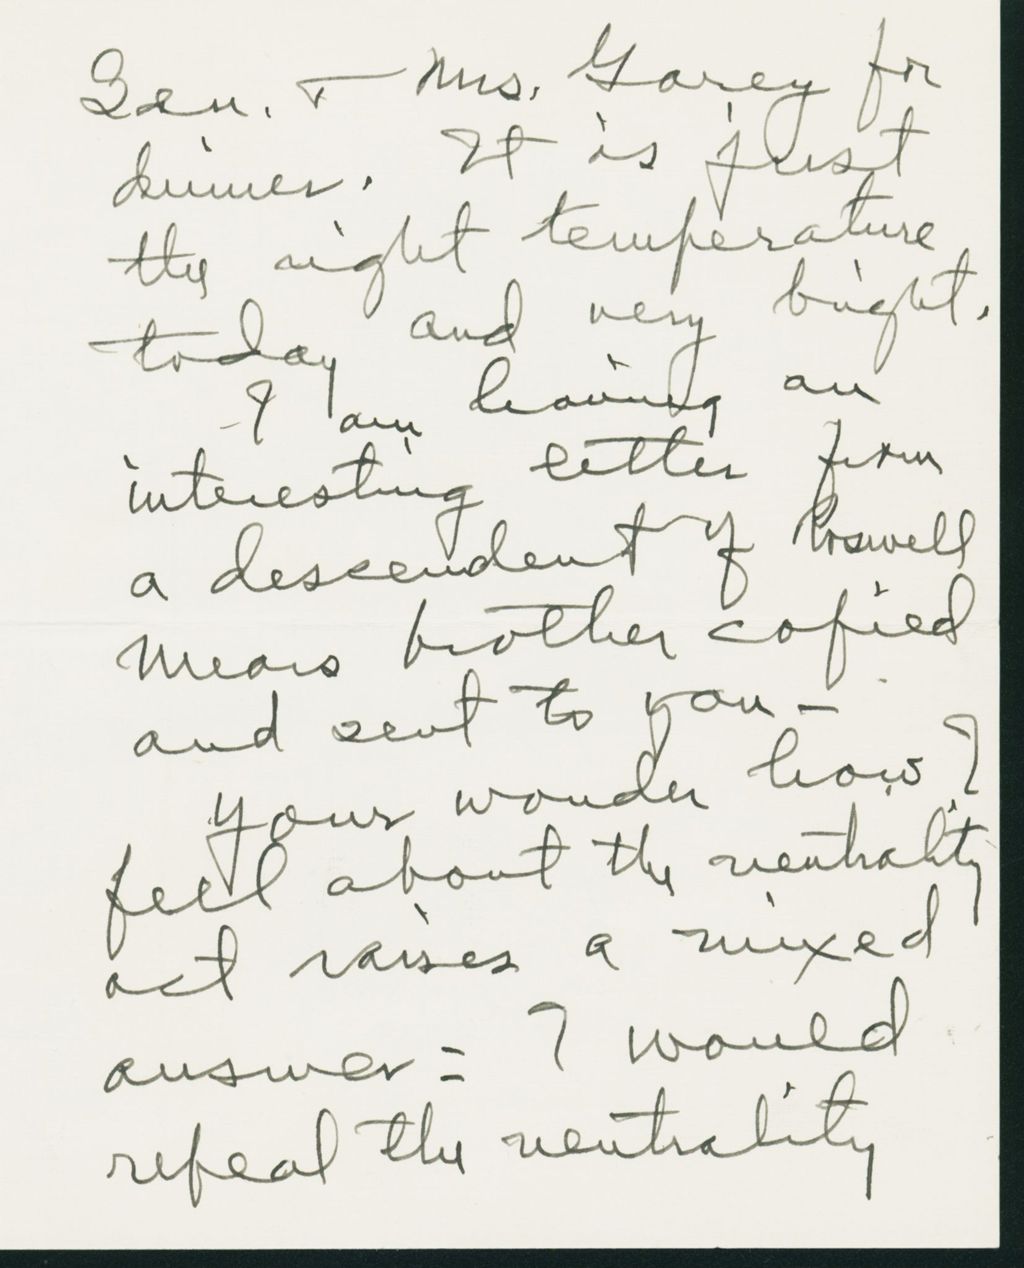 Gen. + Mrs. Garey for
dinner. It is just
the right temperature
today and very bright.
I am having an
interesting letter from
a descendent of Roswell
Mears brother copied
and sent to you —
Your wonder how I
feel about the neutrality
act raises a mixed
answer = I would
repeal the neutrality